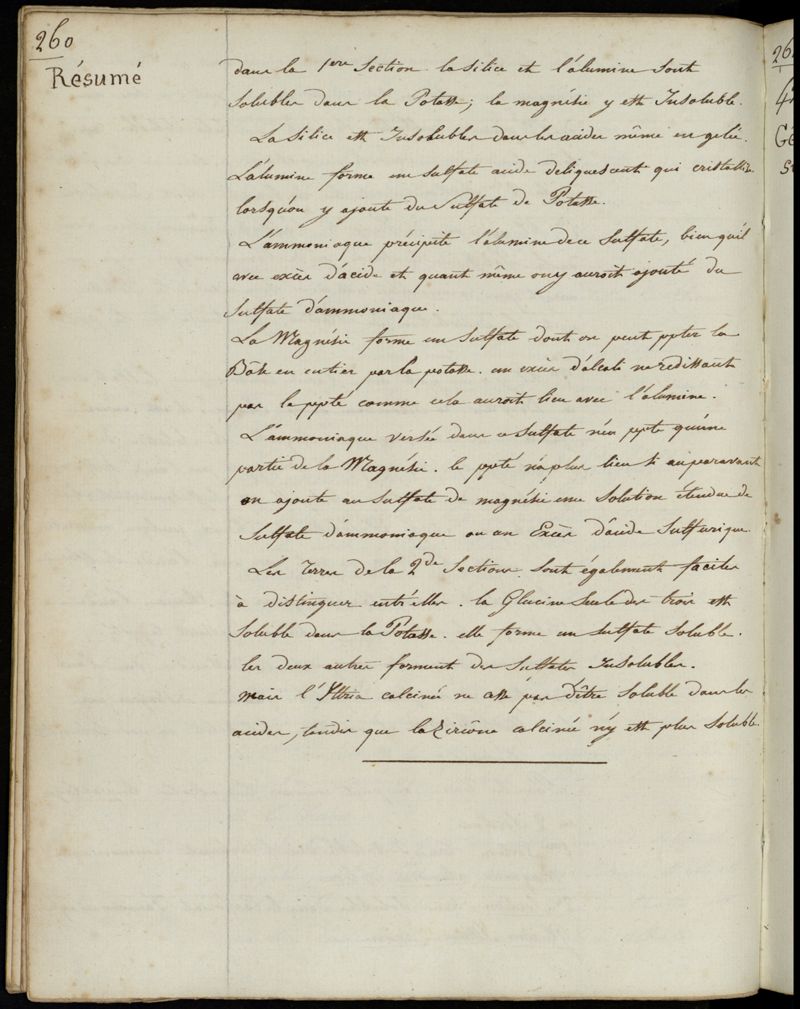 260
Résumé
dans la 1ere Section la Silice et l'alumine sont
solubles dans la Potasse; la magnésie y est Insoluble.
La Silice est Insoluble dans les acides même en gelée.
L'alumine forme un sulfate acide déliquescent qui cristallise
lorsqu'on y ajoute du Sulfate de Potasse.
L'ammoniaque précipite l'alumine de ce Sulfate, bien qu'il
avec excès d'acide et quant même on y auroit ajouté du
Sulfate d'ammoniaque.
La Magnésie forme un Sulfate dont on peut ppter la
Bâse en entier par la potasse. un excès d'alcali ne redissout
pas le ppté comme cela auroit lieu avec l'alumine.
L'ammoniaque versée dans ce Sulfate n'en ppte qu'une
partie de la Magnésie. le ppté n'a plus lieu si auparavant
on ajoute au sulfate de magnésie une Solution étendue de
Sulfate d'ammoniaque ou un Excès d'acide Sulfurique.
Les Terres de la 2de Section sont également faciles
à distinguer entr'elles. la Glucine seule des trois est
Soluble dans la Potasse. elle forme un sulfate soluble.
les deux autres forment des Sulfates Insolubles.
mais l'Ittria calcinée ne cesse pas d'être soluble dans les
acides, tandis que la Zircône calcinée n'y est plus soluble.